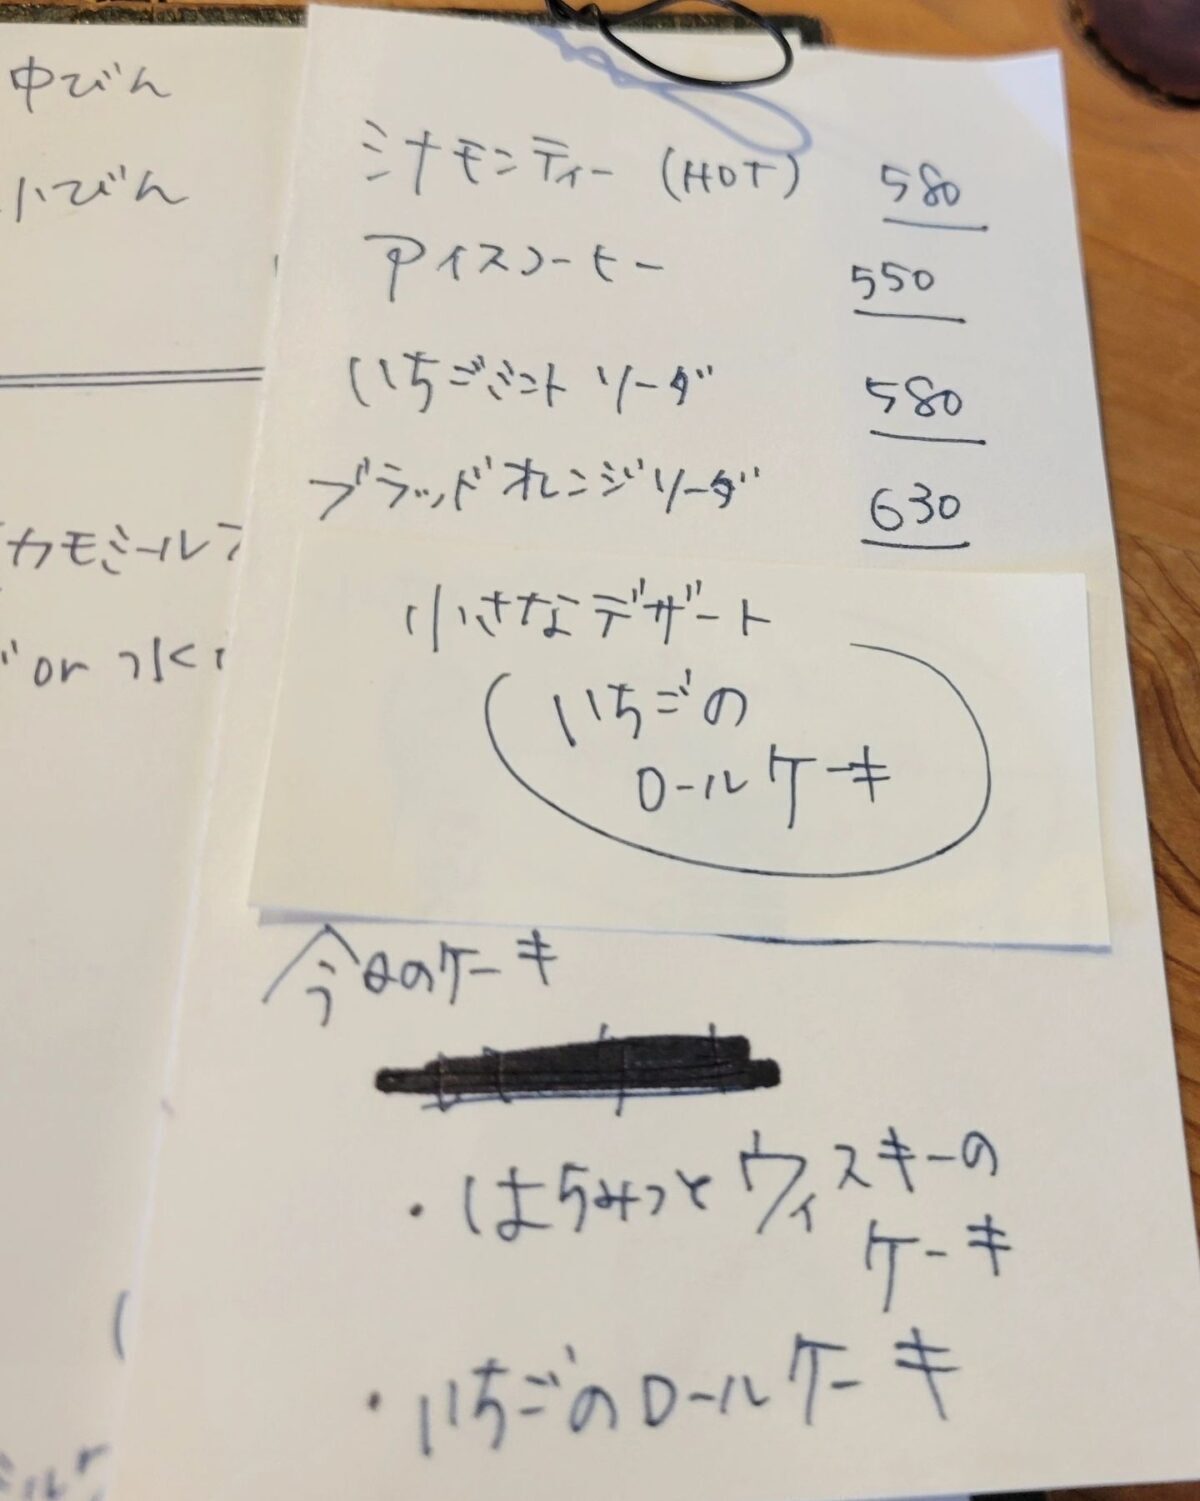 中びん
小びん
カモミール
or 水く
シナモンティー (HOT) 580
アイスコーヒー 550
いちごミントソーダ 580
ブラッドオレンジソーダ 630
小さなデザート
いちごの
ロールケーキ
今日のケーキ
・はちみつとウィスキーの
ケーキ
・いちごのロールケーキ